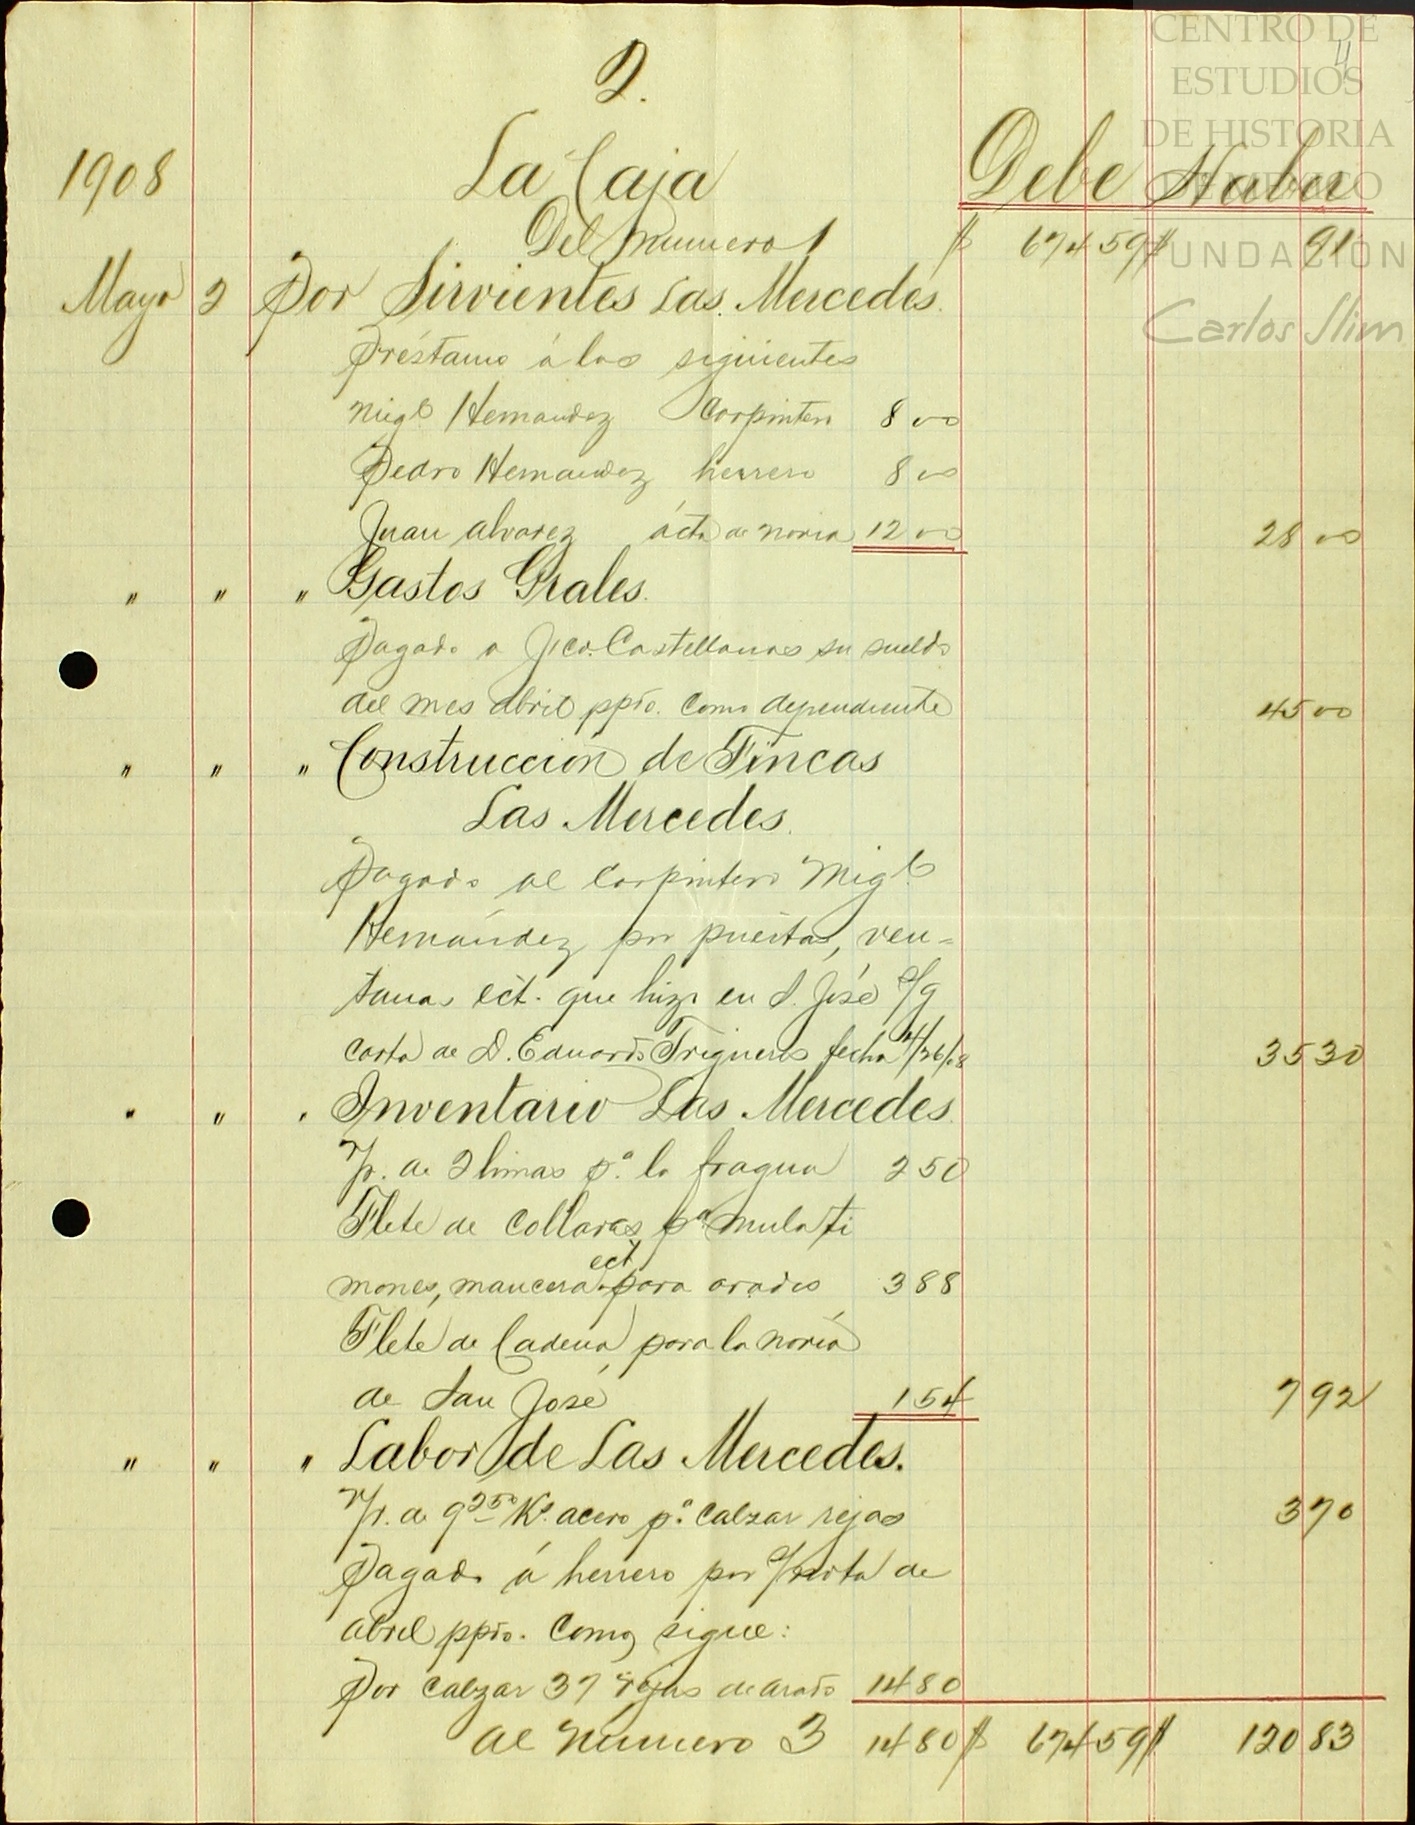 CENTRO DE
ESTUDIOS
DE HISTORIA
DE MÉXICO
FUNDACIÓN
Carlos Slim
2.
1908 La Caja Debe Haber
Del numero 1 $ 674 59 $ 91
Mayo 2 Por Sirvientes Las Mercedes.
Préstamo á los siguientes
Migl Hernandez Carpintero 8 00
Pedro Hernandez herrero 8 00
Juan Alvarez ácta de noria 12 00 28 00
" " " Gastos Grales.
Pagado a Fco. Castellanos su sueldo
del mes abril ppdo. como dependiente 45 00
" " " Construccion de Fincas
Las Mercedes.
Pagado al Carpintero Migl.
Hernández por puertas, ven=
tanas ect. que hizo en S. José s/g
carta de D. Eduardo Trigueros fecha 4/26/08 35 30
" " " Inventario Las Mercedes
V/r. de 2 limas pa. la fragua 2 50
Flete de collares pa. mula ti
mones, mancera ect. para arados 3 88
Flete de Cadena para la noria
de San José 1 54 7 92
" " " Labor de Las Mercedes.
V/r. de 9 250 Ks. acero pa. calzar rejas 3 70
Pagado á herrero por de
abril ppdo. como sigue:
Por calzar 37 rejas de arado 14 80
Al Numero 3 14 80 $ 674 59 $ 120 83